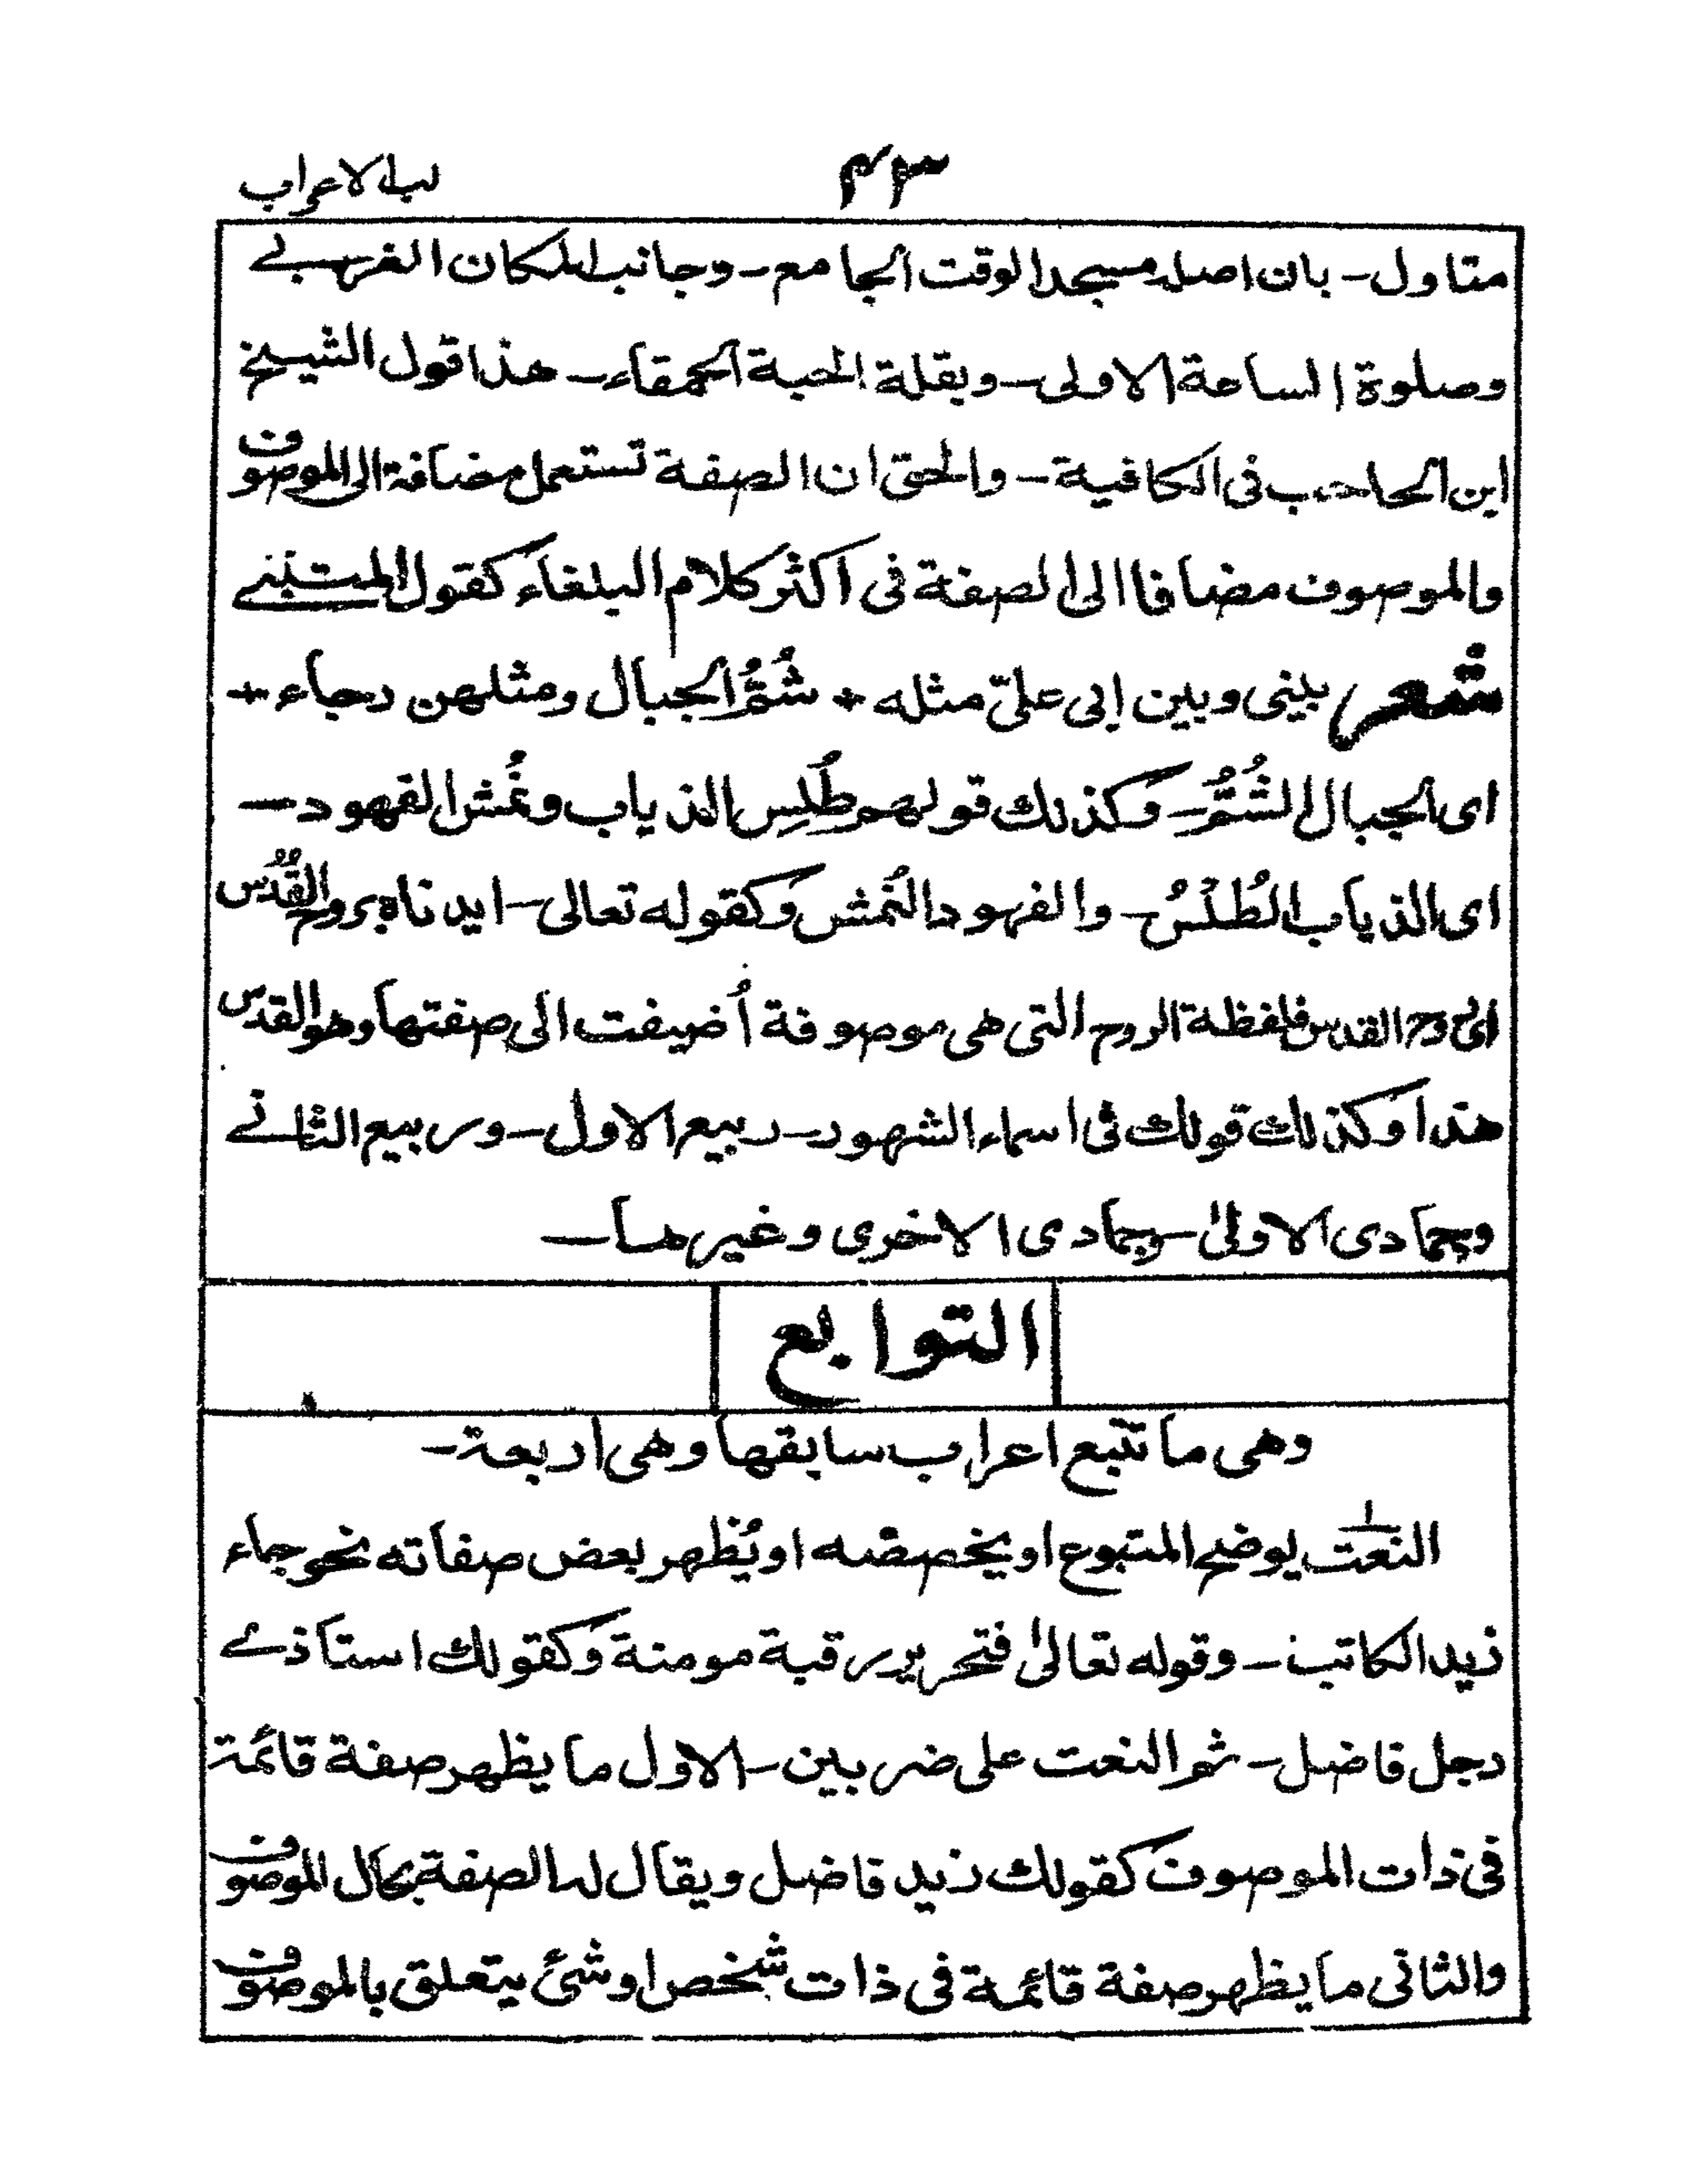 لب الاعراب
٤٣
متاول - بان اصله مسجد الوقت الجامع - وجانب المكان الغربي
وصلوة الساعة الاولى - وبقلة الحبة الحمقاء - هذا قول الشيخ
ابن الحاجب فى الكافية - والحق ان الصفة تستعمل مضافة الى الموصوف
والموصوف مضافا الى الصفة فى اكثر كلام البلغاء كقول المتنبى
شعر بينى وبين ابى علىّ مثله + شُمُّ الجبال ومثلهن رجاء +
اى الجبال الشُمُّ - وكذلك قولهم طُلس الذياب ونُمْش الفهود -
اى الذياب الطُلْسُ - والفهود النُمش وكقوله تعالى - ايدناه بروح القُدُس
اى الروح القدس فلفظة الروح التى هى موصوفة اُضيفت الى صفتها وهو القدس
هذا وكذلك قولك فى اسماء الشهور - ربيع الاول - وربيع الثانى
وجمادى الاولىٰ - وجمادى الاخرى وغيرهما -
التوابع
وهى ما تتبع اعراب سابقها وهى اربعة -
النعت يوضح المتبوع او يخصصه او يُظهر بعض صفاته نحو جاء
زيد الكاتب - وقوله تعالىٰ فتحرير رقبة مومنة وكقولك استاذى
رجل فاضل - ثم النعت على ضربين - الاول ما يظهر صفة قائمة
فى ذات الموصوف كقولك زيد فاضل ويقال له الصفة بحال الموصوف
والثانى ما يظهر صفة قائمة فى ذات شخص او شئ يتعلق بالموصوف